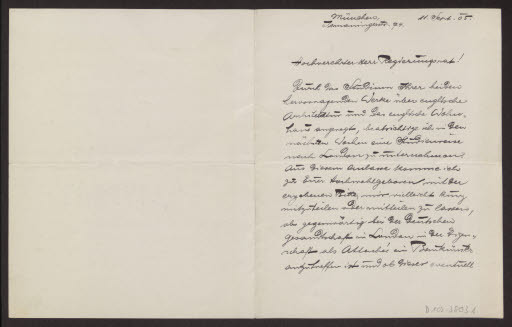 München,
11. Sept. 05.
Hochverehrter Herr Regierungsrat!
Durch das Studium Ihrer beiden
hervorragenden Werke über englische
Architektur und das englische Wohn-
haus angeregt, beabsichtige ich in den
nächsten Wochen eine Studienreise
nach London zu unternehmen.
Aus diesem Anlasse komme ich
zu Euer Hochwohlgeboren, mit der
ergebenen Bitte, mir vielleicht kurz
mitzuteilen oder mitteilen zu lassen,
ob gegenwärtig bei der Deutschen
Gesandtschaft in London in der Eigen-
schaft als Attaché ein Baukünstler
anzutreffen ist und ob dieser eventuell